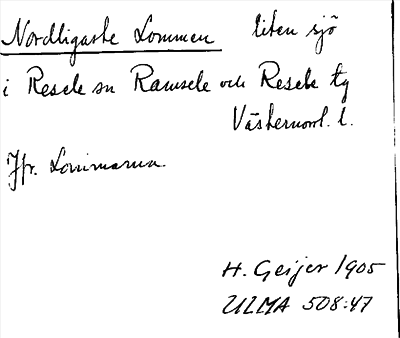 Nordligaste Lommen liten sjö
i Resele sn Ramsele och Resele tg
Västernorrl. l.
Jfr. Lommarna.
H. Geijer 1905
ULMA 508:47